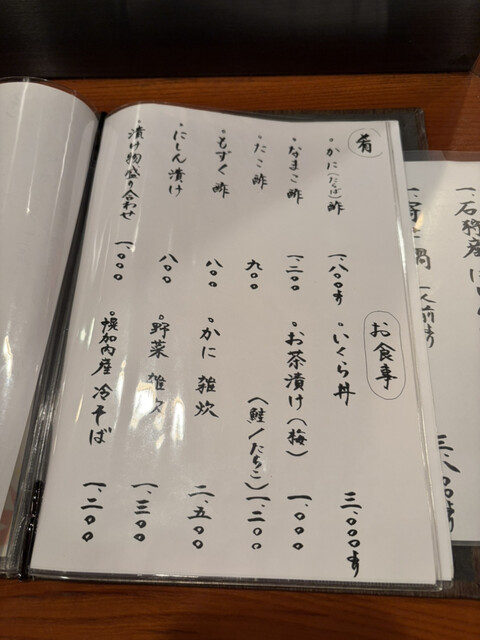 肴
かに(たらば)酢 一、八〇〇より
なまこ酢 一、二〇〇
たこ酢 九〇〇
もずく酢 八〇〇
にしん漬け 八〇〇
漬け物盛り合わせ 一、〇〇〇
お食事
いくら丼 三、〇〇〇より
お茶漬け(梅) 一、〇〇〇
(鮭/たちこ) 一、二〇〇
かに雑炊 二、五〇〇
野菜雑炊 一、三〇〇
幌加内産冷そば 一、二〇〇
石狩産
鍋 一人前より 三、八〇〇より